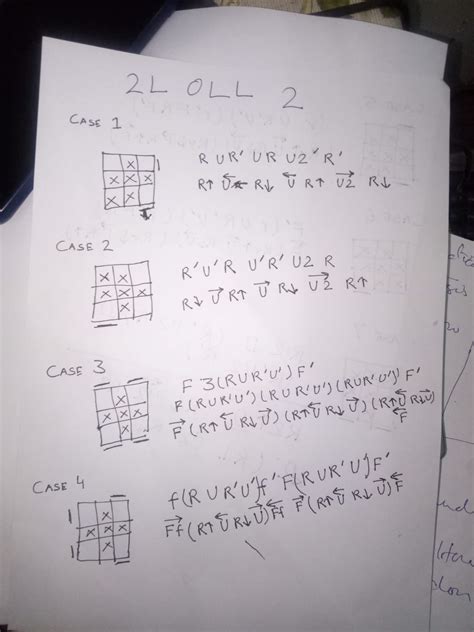 2L OLL 2
CASE 1
R U R' U R U2' R'
R↑ U← R↓ U← R↑ U2→ R↓
CASE 2
R' U' R U' R' U2 R
R↓ U→ R↑ U→ R↓ U2→ R↑
CASE 3
F 3(R U R' U') F'
F(R U R' U')(R U R' U')(R U R' U')' F'
F→(R↑ U← R↓ U→)(R↑ U← R↓ U→)(R↑ U← R↓ U→)
F←
CASE 4
f(R U R' U')f' F(R U R' U')F'
(R↑ U← R↓ U→) F→(R↑ U← R↓ U→)F←